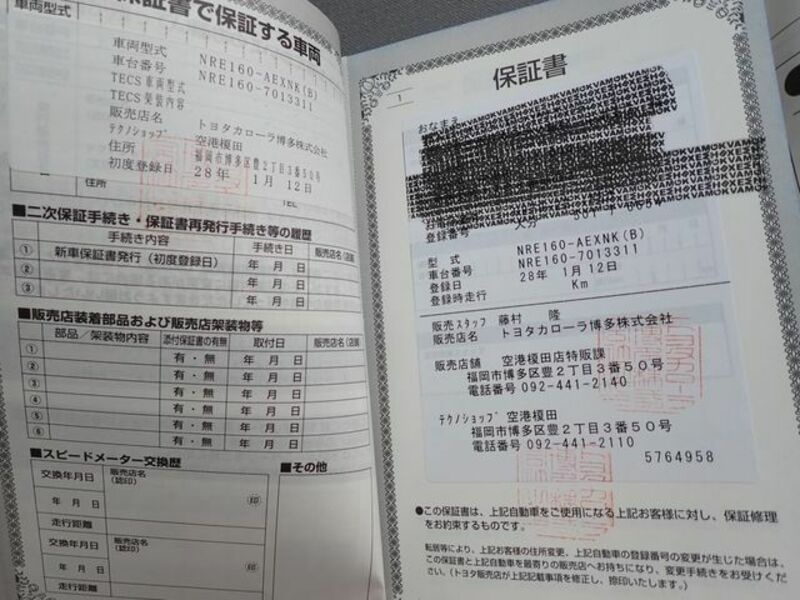 保証書で保証する車両
車両型式
車両型式 NRE160-AEXNK(B)
車台番号 NRE160-7013311
TECS車両型式
TECS架装内容
販売店名 トヨタカローラ博多株式会社
テクノショップ 空港榎田
住所 福岡市博多区豊2丁目3番50号
初度登録日 28年 1月 12日
TEL
住所
■二次保証手続き・保証書再発行手続き等の履歴
手続き内容 手続き日 販売店名(店舗)
① 新車保証書発行(初度登録日) 年 月 日
② 年 月 日
③ 年 月 日
■販売店装着部品および販売店架装物等
部品/架装物内容 添付保証書の有無 取付日 販売店名(店舗)
① 有・無 年 月 日
② 有・無 年 月 日
③ 有・無 年 月 日
④ 有・無 年 月 日
⑤ 有・無 年 月 日
⑥ 有・無 年 月 日
■スピードメーター交換歴
交換年月日 販売店名(認印)
年 月 日 印
走行距離
交換年月日 販売店名(認印)
年 月 日 印
走行距離
■その他
保証書
1
おなまえ
登録番号 大分
型式 NRE160-AEXNK(B)
車台番号 NRE160-7013311
登録日 28年 1月 12日
登録時走行 Km
販売スタッフ 藤村 隆
販売店名 トヨタカローラ博多株式会社
販売店舗 空港榎田店特販課
福岡市博多区豊2丁目3番50号
電話番号 092-441-2140
テクノショップ 空港榎田
福岡市博多区豊2丁目3番50号
電話番号 092-441-2110
5764958
●この保証書は、上記自動車をご使用になる上記お客様に対し、保証修理
をお約束するものです。
転居等により、上記お客様の住所変更、上記自動車の登録番号の変更が生じた場合は、
この保証書と上記自動車を最寄りの販売店へお持ちになり、変更手続きをお受けくだ
さい。(トヨタ販売店が上記記載事項を修正し、捺印いたします。)